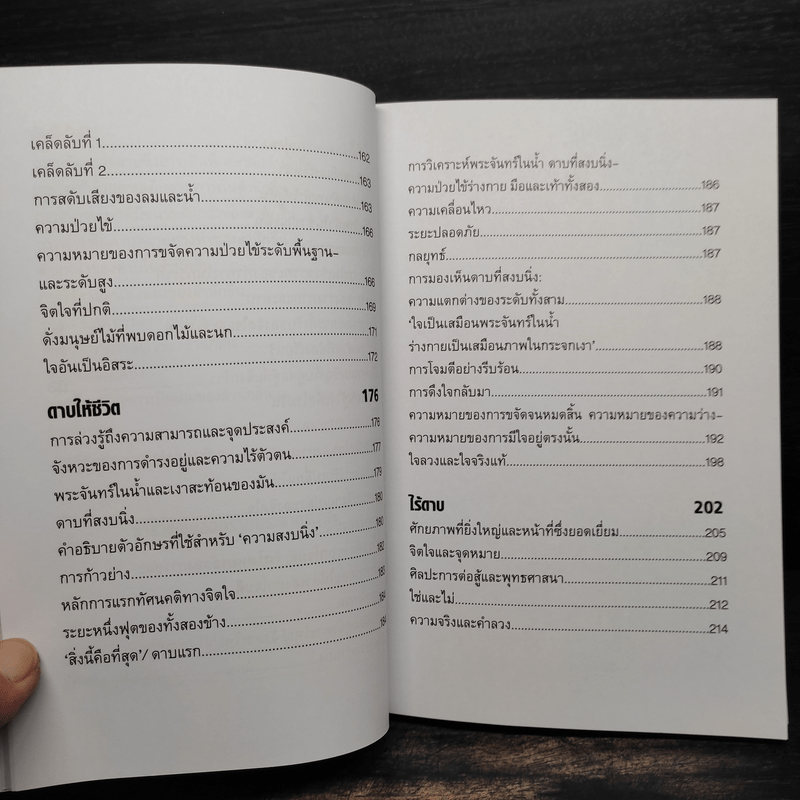 เคล็ดลับที่ 1 162
เคล็ดลับที่ 2 163
การสดับเสียงของลมและน้ำ 163
ความป่วยไข้ 166
ความหมายของการขจัดความป่วยไข้ระดับพื้นฐาน-
และระดับสูง 166
จิตใจที่ปกติ 169
ดั่งมนุษย์ไม้ที่พบดอกไม้และนก 171
ใจอันเป็นอิสระ 172
ดาบให้ชีวิต 176
การล่วงรู้ถึงความสามารถและจุดประสงค์ 176
จังหวะของการดำรงอยู่และความไร้ตัวตน 177
พระจันทร์ในน้ำและเงาสะท้อนของมัน 179
ดาบที่สงบนิ่ง 180
คำอธิบายตัวอักษรที่ใช้สำหรับ ‘ความสงบนิ่ง’ 180
การก้าวย่าง 182
หลักการแรกทัศนคติทางจิตใจ 183
ระยะหนึ่งฟุตของทั้งสองข้าง 184
‘สิ่งนี้คือที่สุด’/ ดาบแรก 184
การวิเคราะห์พระจันทร์ในน้ำ ดาบที่สงบนิ่ง-
ความป่วยไข้ร่างกาย มือและเท้าทั้งสอง 186
ความเคลื่อนไหว 187
ระยะปลอดภัย 187
กลยุทธ์ 187
การมองเห็นดาบที่สงบนิ่ง:
ความแตกต่างของระดับทั้งสาม 188
‘ใจเป็นเสมือนพระจันทร์ในน้ำ
ร่างกายเป็นเสมือนภาพในกระจกเงา’ 188
การโจมตีอย่างรีบร้อน 190
การดึงใจกลับมา 191
ความหมายของการขจัดจนหมดสิ้น ความหมายของความว่าง-
ความหมายของการมีใจอยู่ตรงนั้น 192
ใจลวงและใจจริงแท้ 198
ไร้ดาบ 202
ศักยภาพที่ยิ่งใหญ่และหน้าที่ซึ่งยอดเยี่ยม 205
จิตใจและจุดหมาย 209
ศิลปะการต่อสู้และพุทธศาสนา 211
ใช่และไม่ 212
ความจริงและคำลวง 214